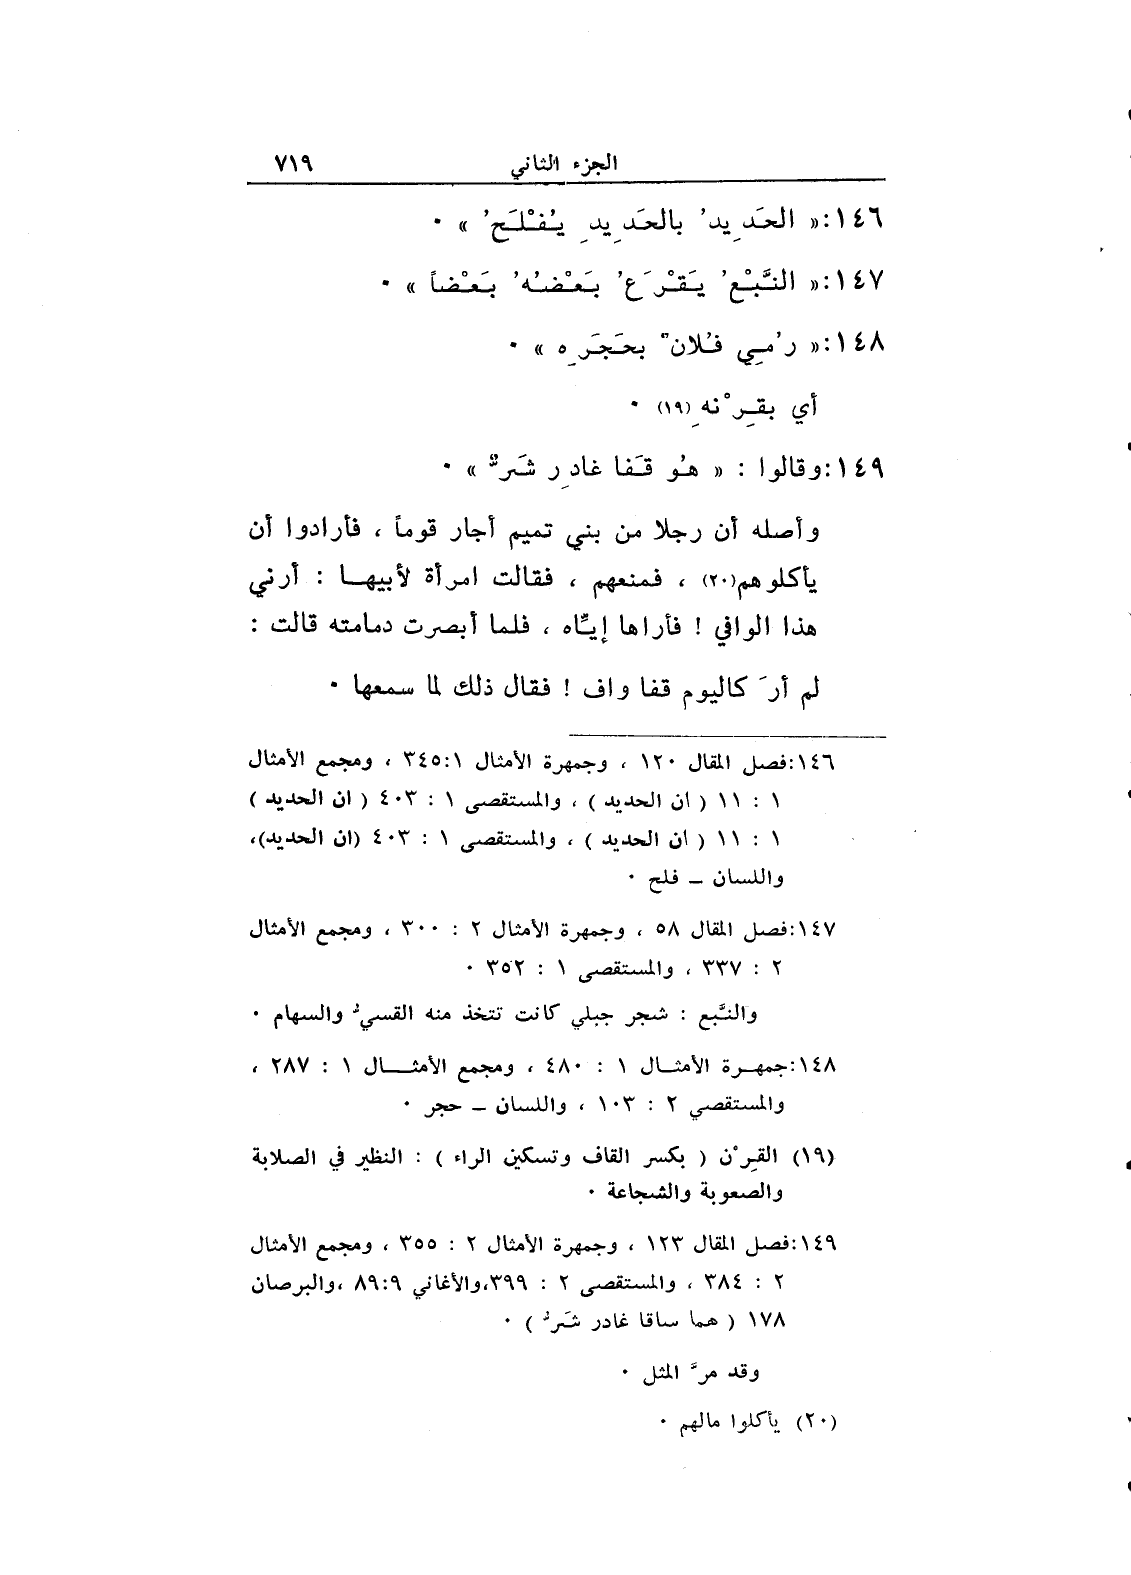 الجزء الثاني ٧١٩
١٤٦:« الحَدِيدُ بالحَدِيدِ يُفْلَحُ » ٠
١٤٧:« النَّبْعُ يَقْرَعُ بَعْضُهُ بَعْضاً » ٠
١٤٨:« رُمِيَ فُلانٌ بحَجَرِهِ » ٠
أي بقِرْنهِ (١٩) ٠
١٤٩:وقالوا : « هُو قَفا غادِرٍ شَرٌّ » ٠
وأصله أن رجلا من بني تميم أجار قوماً ، فأرادوا أن
يأكلوهم(٢٠) ، فمنعهم ، فقالت امرأة لأبيهـا : أرني
هذا الوافي ! فأراها إيَّاه ، فلما أبصرت دمامته قالت :
لم أرَ كاليوم قفا واف ! فقال ذلك لما سمعها ٠
١٤٦:فصل المقال ١٢٠ ، وجمهرة الأمثال ٣٤٥:١ ، ومجمع الأمثال
١ : ١١ ( ان الحديد ) ، والمستقصى ١ : ٤٠٣ ( ان الحديد )
١ : ١١ ( ان الحديد ) ، والمستقصى ١ : ٤٠٣ (ان الحديد)،
واللسان ـ فلح ٠
١٤٧:فصل المقال ٥٨ ، وجمهرة الأمثال ٢ : ٣٠٠ ، ومجمع الأمثال
٢ : ٣٣٧ ، والمستقصى ١ : ٣٥٢ ٠
والنَّبع : شجر جبلي كانت تتخذ منه القسيُّ والسهام ٠
١٤٨:جمهـرة الأمثـال ١ : ٤٨٠ ، ومجمع الأمثـــال ١ : ٢٨٧ ،
والمستقصي ٢ : ١٠٣ ، واللسان ـ حجر ٠
(١٩) القِرْن ( بكسر القاف وتسكين الراء ) : النظير في الصلابة
والصعوبة والشجاعة ٠
١٤٩:فصل المقال ١٢٣ ، وجمهرة الأمثال ٢ : ٣٥٥ ، ومجمع الأمثال
٢ : ٣٨٤ ، والمستقصى ٢ : ٣٩٩،والأغاني ٨٩:٩ ،والبرصان
١٧٨ ( هما ساقا غادر شَرُّ ) ٠
وقد مرَّ المثل ٠
(٢٠) يأكلوا مالهم ٠